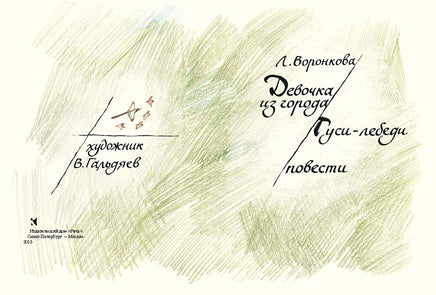 художник
В. Гальдяев
Издательский дом «Речь»
Санкт-Петербург — Москва
2015
Л. Воронкова
Девочка
из города
Гуси-лебеди
повести